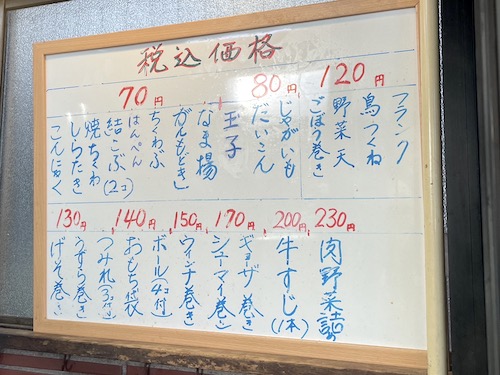 税込価格
120円
フランク
鳥つくね
野菜天
ごぼう巻き
80円
じゃがいも
だいこん
玉子
70円
なま揚
がんもどき
ちくわぶ
はんぺん
結こぶ(2コ)
焼ちくわ
しらたき
こんにゃく
230円
肉野菜詰め
200円
牛すじ(1本)
170円
ギョーザ巻き
シューマイ巻き
150円
ウィンナ巻き
140円
ボール(4コ付)
おもち袋
つみれ(3コ付)
130円
うずら巻き
げそ巻き